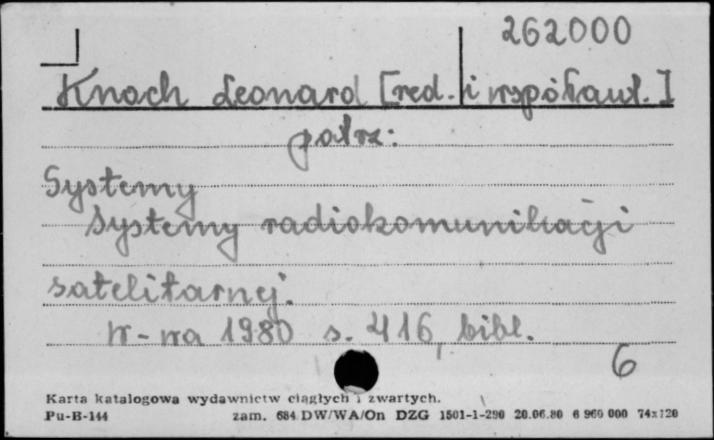 262000
Knoch Leonard [red. i współaut.]
patrz:
Systemy
Systemy radiokomunikacji
satelitarnej.
W-wa 1980 s. 416, bibl.
6
Karta katalogowa wydawnictw ciągłych i zwartych.
Pu-B-144 zam. 684 DW/WA/On DZG 1501-1-290 20.06.80 6 960 000 74x120